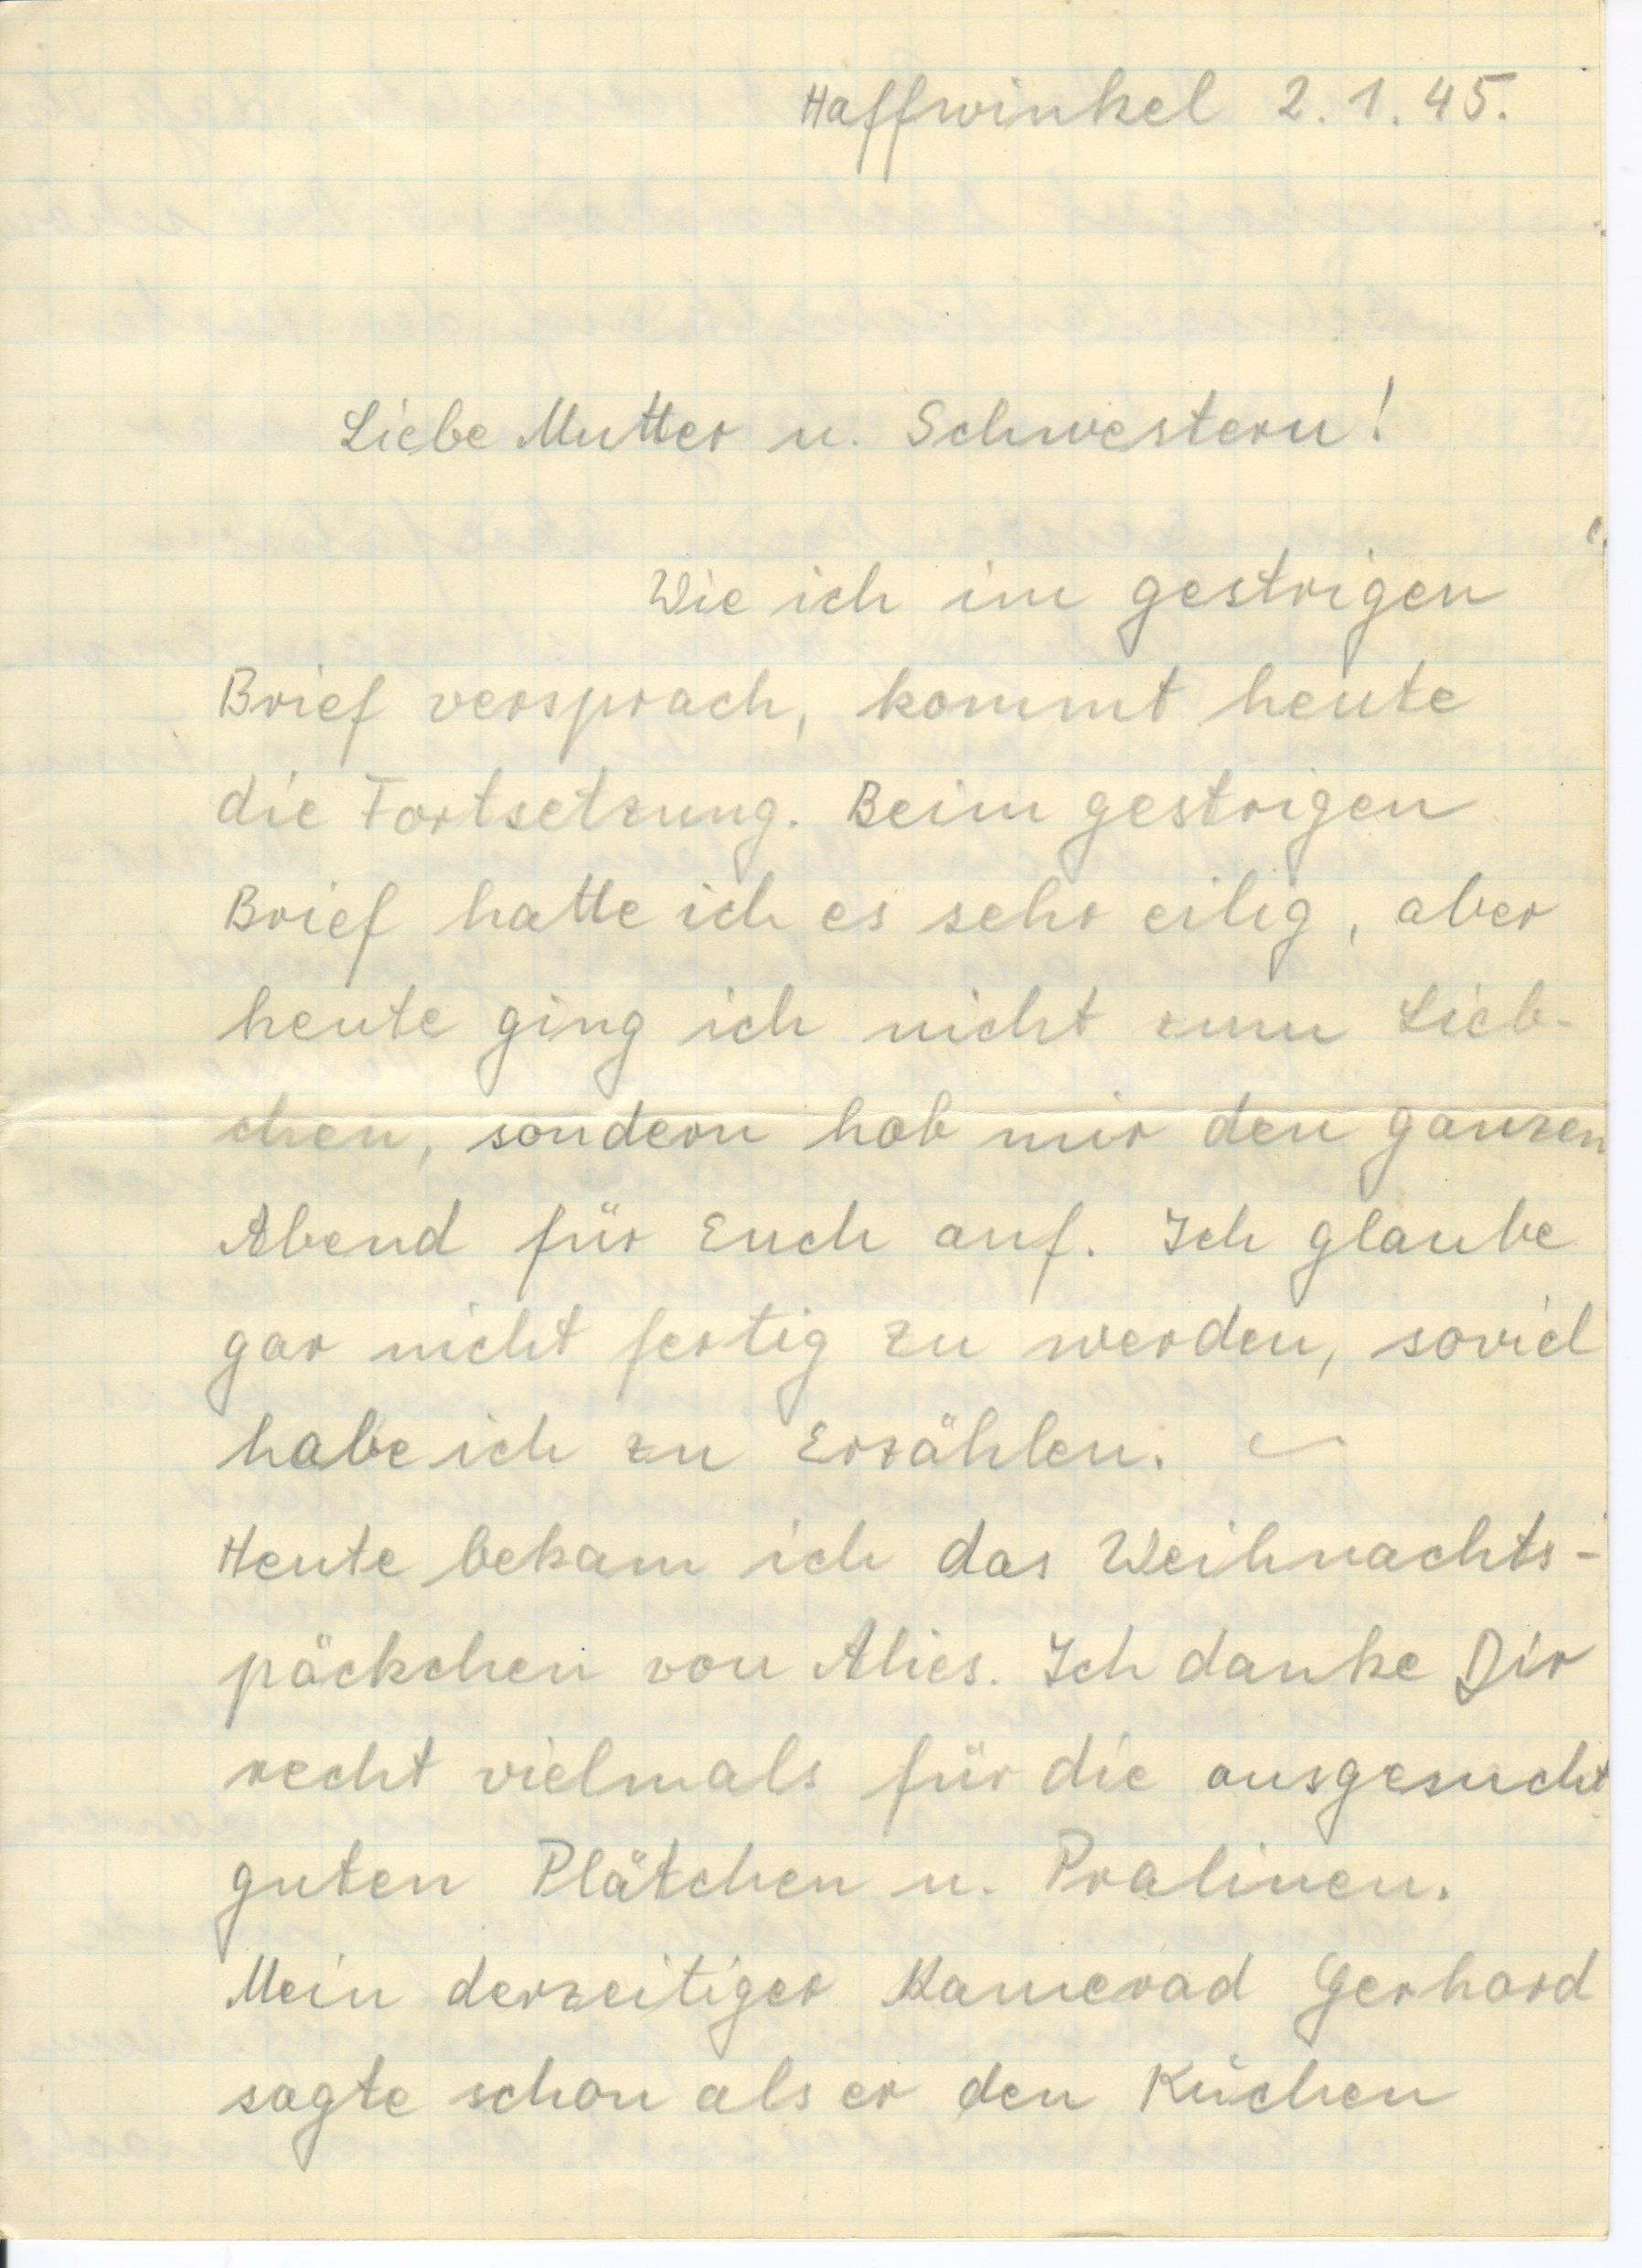 Haffwinkel 2.1.45.
Liebe Mutter u. Schwestern!
Wie ich im gestrigen
Brief versprach, kommt heute
die Fortsetzung. Beim gestrigen
Brief hatte ich es sehr eilig, aber
heute ging ich nicht zum Lieb-
chen, sondern hob mir den ganzen
Abend für Euch auf. Ich glaube
gar nicht fertig zu werden, soviel
habe ich zu Erzählen.
Heute bekam ich das Weihnachts-
päckchen von Alies. Ich danke Dir
recht vielmals für die ausgesucht
guten Plätchen u. Pralinen.
Mein derzeitiger Kamerad Gerhard
sagte schon als er den Kuchen